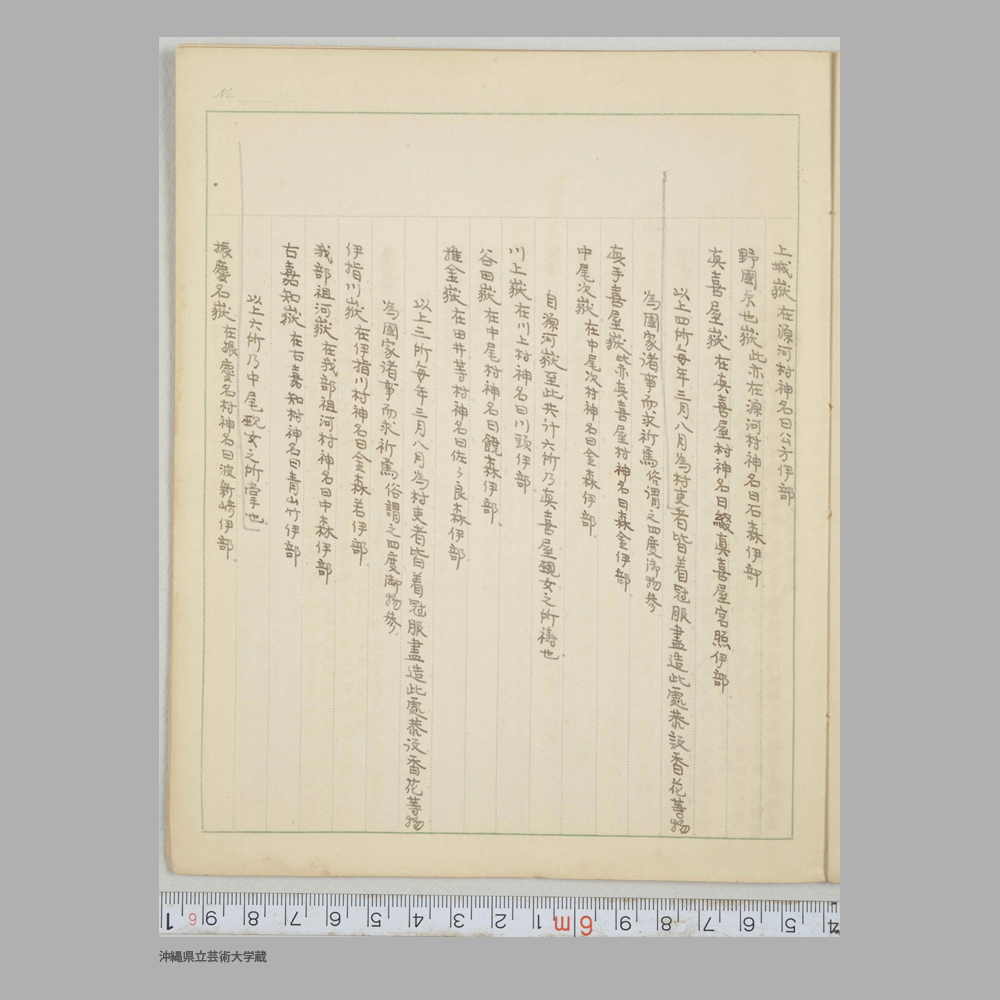 上城嶽 在源河村神名曰公方伊部
野國原也嶽 此亦在源河村神名曰石森伊部
真喜屋嶽 在真喜屋村神名曰綴真喜屋宮照伊部
以上四所每年三月八月為村吏者皆着冠服盡造此處恭設香花等物
為國家諸事而求祈焉俗謂之四度御物參
真手喜屋嶽 此亦真喜屋村神名曰森金伊部
中尾次嶽 在中尾次村神名曰金森伊部
自源河嶽至此共計六所乃真喜屋覡女之所禱也
川上嶽 在川上村神名曰川頸伊部
谷田嶽 在中尾村神名曰饒森伊部
推金嶽 在田井等村神名曰佐々良森伊部
以上三所每年三月八月為村吏者皆着冠服盡造此處恭設香花等物
為國家諸事而求祈焉俗謂之四度御物參
伊指川嶽 在伊指川村神名曰金森若伊部
我部祖河嶽 在我部祖河村神名曰中森伊部
古嘉知嶽 在古嘉知村神名曰青竹伊部
以上六所乃中尾覡女之所掌也
振慶名嶽 在振慶名村神名曰波新崎伊部
No.
1 6 9 8 7 6 5 4 3 2 1 6m 9 8 7 6 5 4
沖縄県立芸術大学蔵